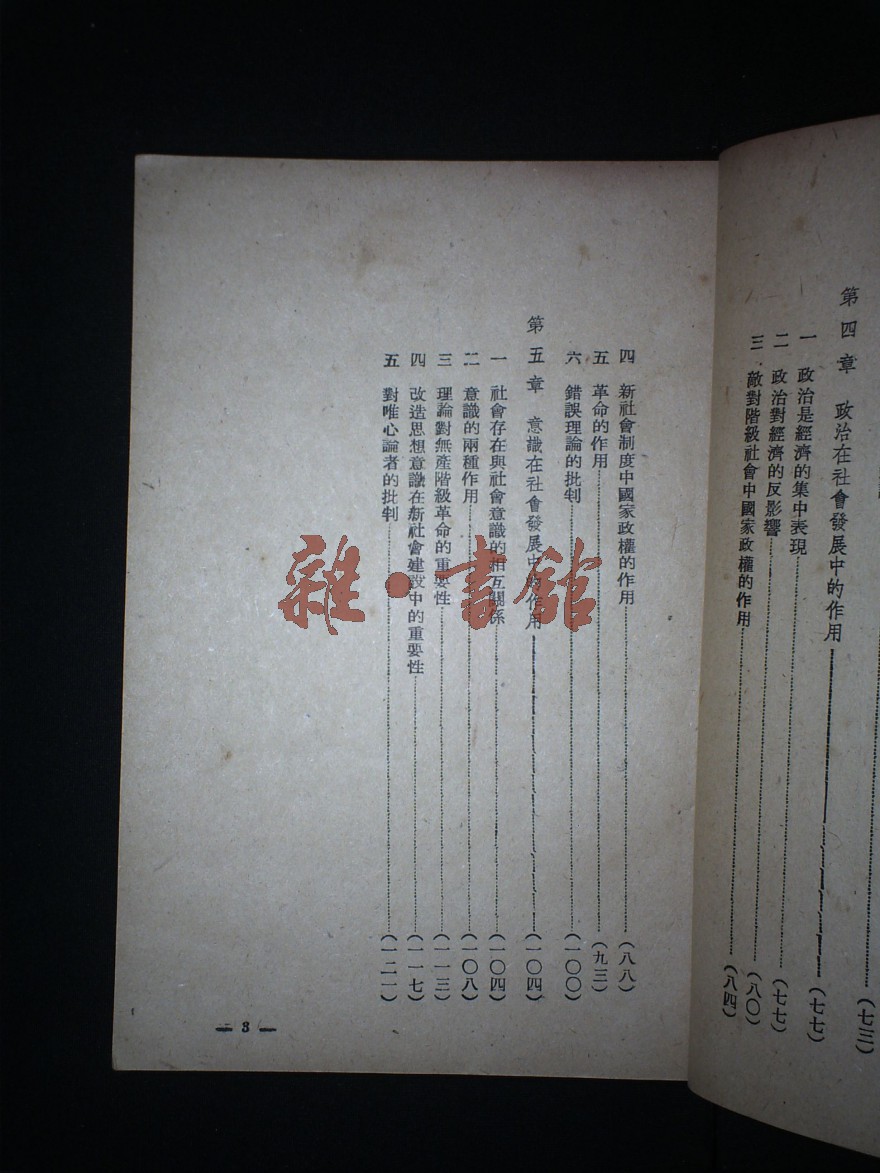 (七三)
第四章 政治在社會發展中的作用 (七七)
一 政治是經濟的集中表現 (七七)
二 政治對經濟的反影響 (八〇)
三 敵對階級社會中國家政權的作用 (八四)
四 新社會制度中國家政權的作用 (八八)
五 革命的作用 (九三)
六 錯誤理論的批判 (一〇〇)
第五章 意識在社會發展中的作用 (一〇四)
一 社會存在與社會意識的相互關係 (一〇四)
二 意識的兩種作用 (一〇八)
三 理論對無產階級革命的重要性 (一一三)
四 改造思想意識在新社會建設中的重要性 (一一七)
五 對唯心論者的批判 (一二一)
— 3 —
雜·書館